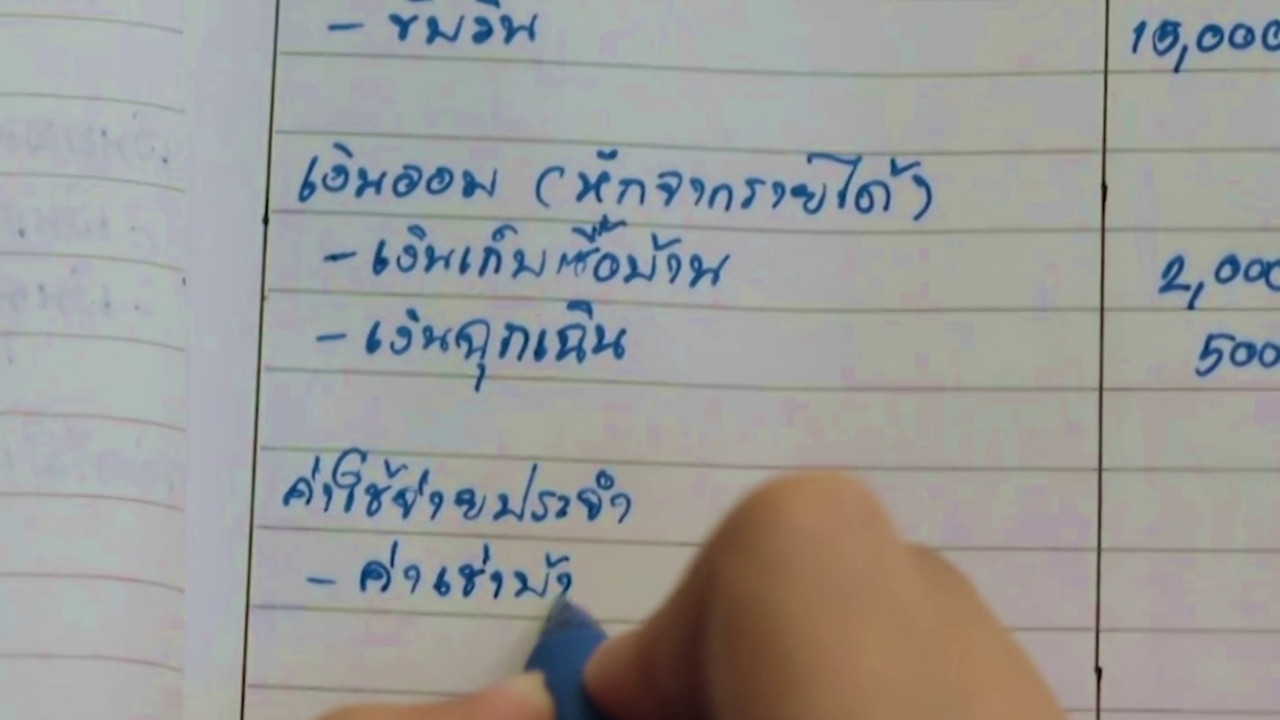 - 15,000
เงินออม (หักจากรายได้)
- เงินเก็บซื้อบ้าน 2,000
- เงินฉุกเฉิน 500
ค่าใช้จ่ายประจำ
- ค่าเช่าบ้า